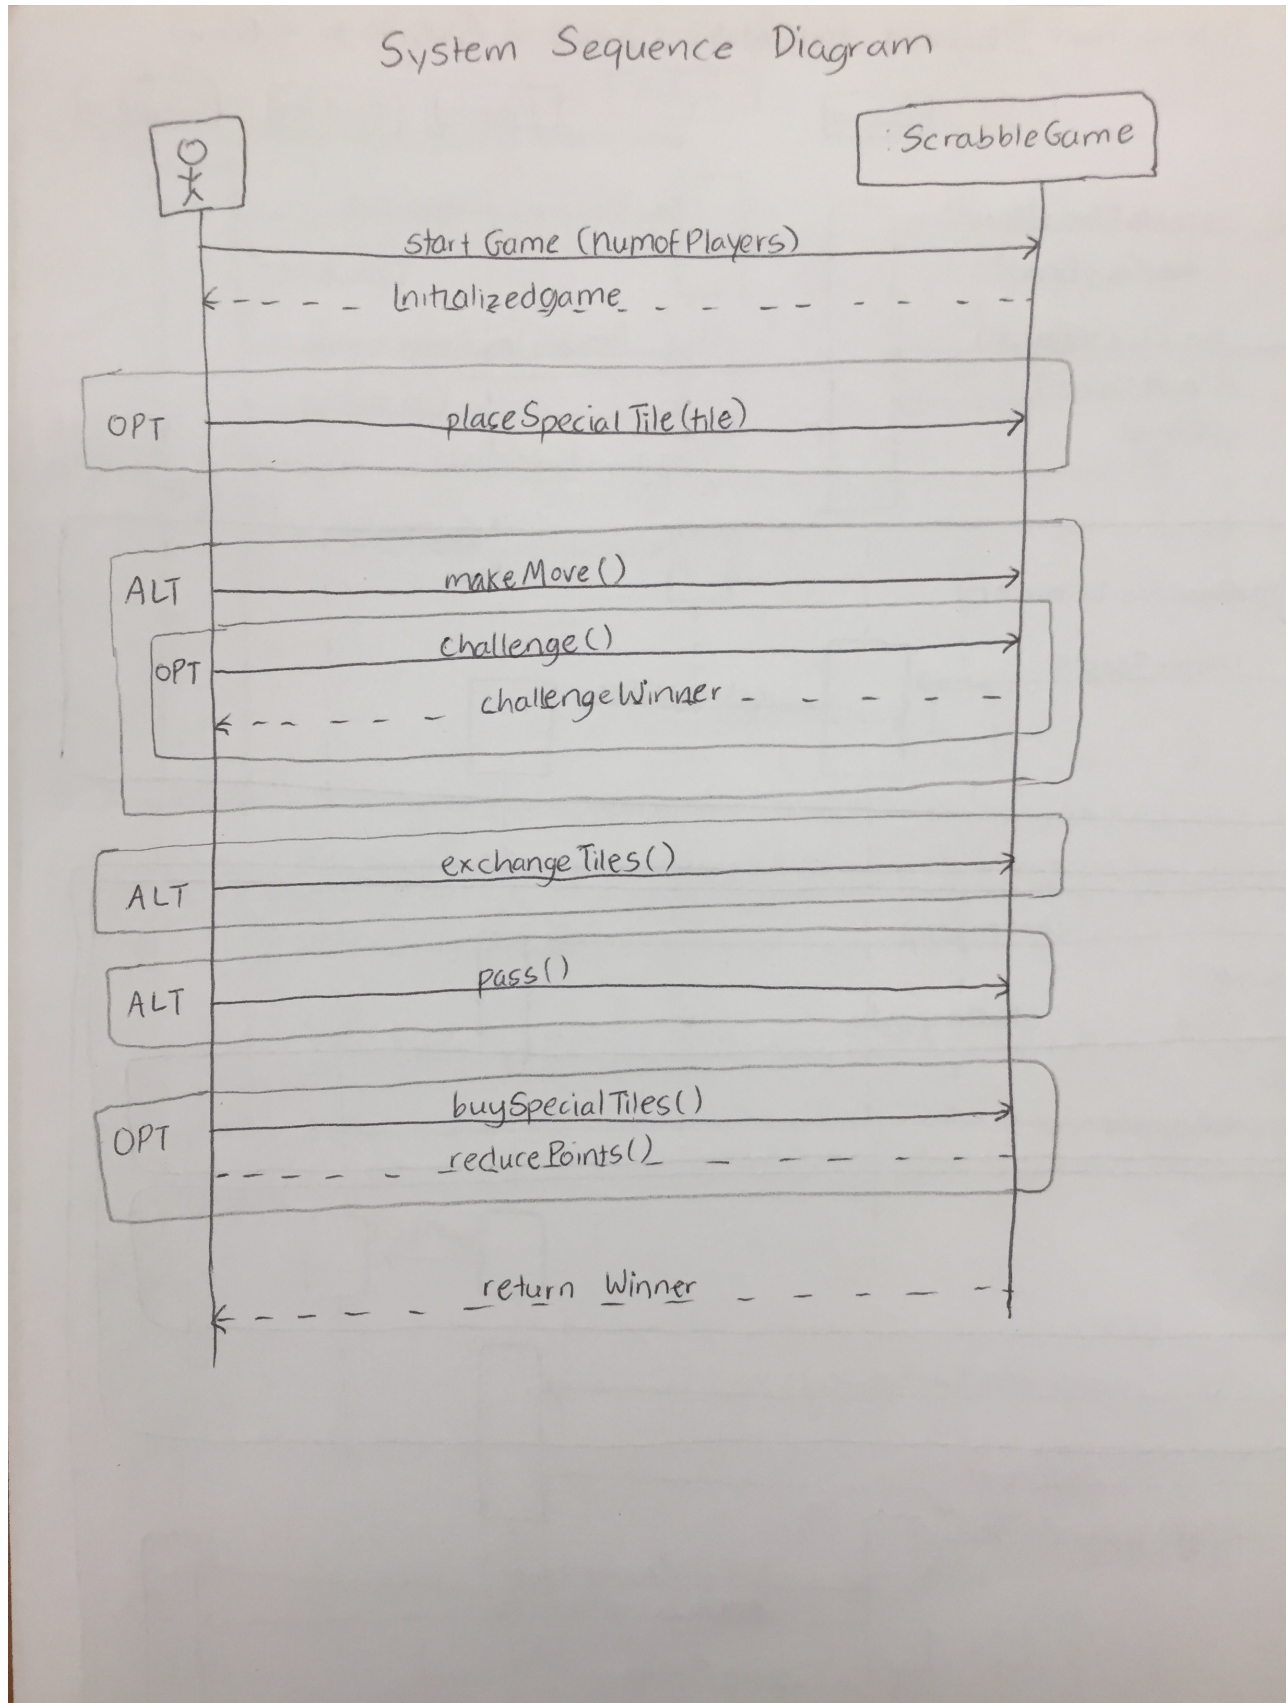 System Sequence Diagram
:ScrabbleGame
startGame (numofPlayers)
Initializedgame
OPT
placeSpecialTile(tile)
ALT
makeMove()
OPT
challenge()
challengeWinner
ALT
exchangeTiles()
ALT
pass()
OPT
buySpecialTiles()
reducePoints()
return Winner